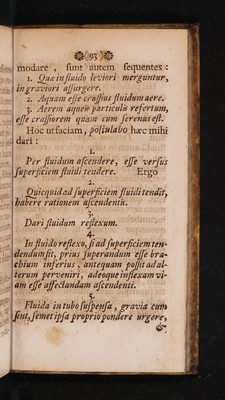 93
modare, sunt autem sequentes:
1. Quæ in fluido leviori merguntur,
in graviori assurgere.
2. Aquam esse crassius fluidum aere.
3. Aerem aqueis particulis refertum,
esse crassiorem quam cum serenus est.
Hoc ut faciam, postulabo hæc mihi
dari:
1.
Per fluidum ascendere, esse versus
superficiem fluidi tendere. Ergo
2.
Quicquid ad superficiem fluidi tendit,
habere rationem ascendentis.
3.
Dari fluidum reflexum.
4.
In fluido reflexo, si ad superficiem ten-
dendum sit, prius superandum esse bra-
chium inferius, antequam possit ad al-
terum perveniri, adeoque inflexam vi-
am esse affectandam ascendenti.
5.
Fluida in tubo suspensa, gravia cum
sint, semet ipsa proprio pondere urgere,
&